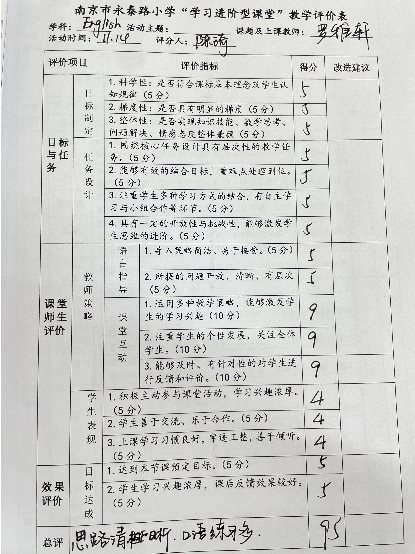 南京市永泰路小学“学习进阶型课堂”教学评价表
学科：English 活动主题： 课题及上课教师：
活动时间：11.14 评分人：陈琦
评价项目 评价指标 得分 改进建议
目标与任务
目标制定
1. 科学性：是否符合课标应本理念及学生认知规律（5分） 5
2. 梯度性：是否具有明显的梯度（5分） 5
3. 整体性：是否实现知识技能、数学思考、问题解决、情感态度整体兼顾（5分） 5
任务设计
1. 围绕核心任务设计具有层次性的教学任务。（5分） 5
2. 能够有效的结合目标，重难点处理到位。（5分） 5
3. 注重学生多种学习方式的结合，有自主学习与小组合作等环节。（5分） 5
4. 具有一定的开放性与挑战性，能够激发学生思维的进阶。（5分） 5
课堂师生评价
教师策略
语言指导
1. 导入统略简洁、易于接受。（5分） 5
2. 所提的问题开放、清晰、有层次（5分） 5
课堂互动
1. 运用多种教学策略，能够激发学生的学习兴趣（10分） 9
2. 注重学生的个性发展，关注全体学生。（10分） 9
3. 能够及时、有针对性的对学生进行反馈和评价。（10分） 9
学生表现
1. 积极主动参与课堂活动，学习兴趣浓厚。（5分） 4
2. 学生善于交流，乐于合作。（5分） 4
3. 上课学习习惯良好，书写工整，善于倾听。（5分） 4
效果评价
目标达成
1. 达到本节课预定目标。（5分） 5
2. 学生学习兴趣浓厚，课后反馈效果较好。（5分） 5
总评 思路清晰，口语练习多。 95